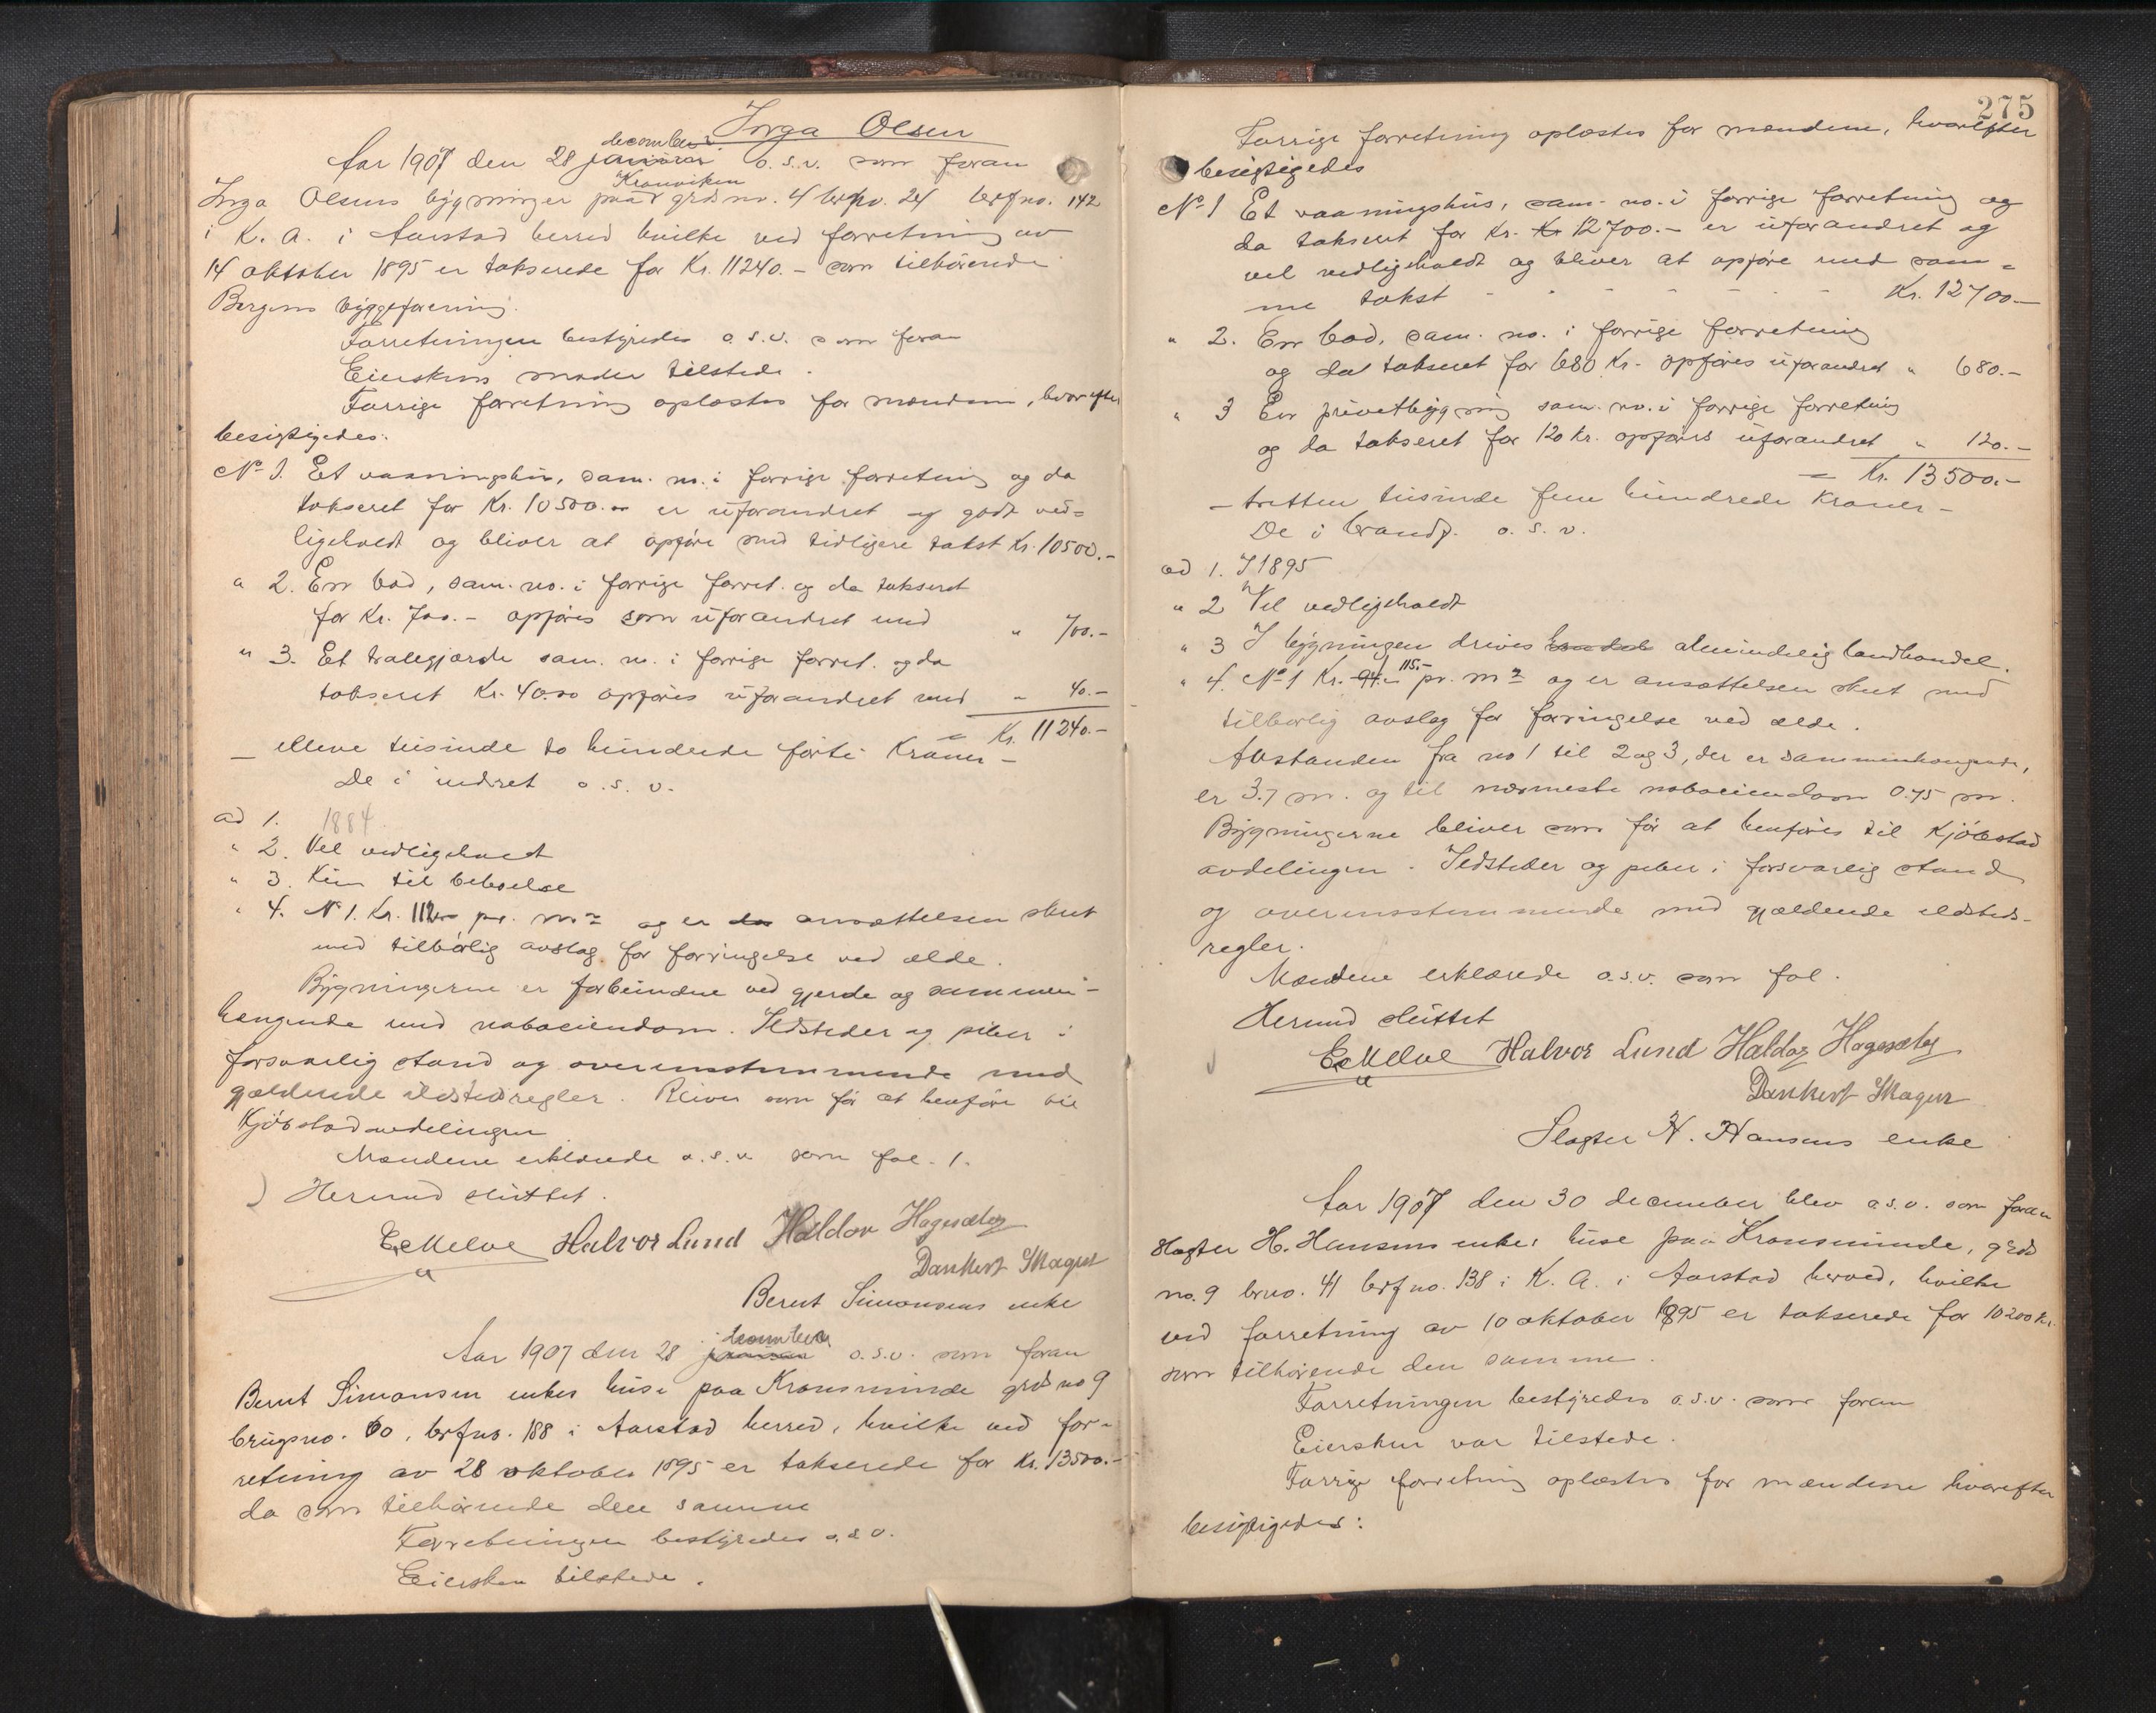 Inga Olsen
Aar 1907 den 28 december o.s.v. som foran
Inga Olsens bygninger paa Kronviken grds no. 4 brpr. 24 brfno. 142
i K. A. i Aarstad herred hvilke ved forretning av
14 oktober 1895 er takserede for Kr. 11240.- som tilhörende
Bergens byggeforening.
Forretningen bestyredes o.s.v. som foran
Eiersken møder tilstede.
Forrige forretning oplæstes for mændene, hvorefter
besigtigedes:
No 1. Et vaaningshus, sam. no. i forrige forretning og da
takseret for Kr. 10500.- er uforandret og godt ved=
ligeholdt og bliver at opføre med tidligere takst Kr. 10500.-
" 2. En bod, sam. no. i forrige forret. og da takseret
for Kr. 700.- opføres som uforandret med " 700.-
" 3. Et tralegjærde sam. no. i forrige forret. og da
takseret Kr. 40.00 opføres uforandret med " 40.-
= Kr. 11240.-
- elleve tusinde to hundrede førti Kroner -
De i indret o.s.v.
ad 1. 1884
" 2. Vel vedligeholdt
" 3. Kun til beboelse
" 4. No 1. Kr. 112.- pr. m2 og er ansættelsen skeet
med tilbörlig avslag for forringelse ved ælde.
Bygningerne er forbundne ved gjerde og sammen-
hengende med naboeiendom. Ildsteder og piber i
forsvarlig stand og overensstemmende med
gjældende ildstedsregler. Bliver som før at henføre til
Kjöbstadavdelingen
Mændene erklærede o.s.v. som fol. 1.
Hermed sluttet.
E. Melve Halvor Lund Haldor Hagesæter
Dankert Skager
Bernt Simonsens enke
Aar 1907 den 28 december o.s.v. som foran
Bernt Simonsen enkes huse paa Kronsminde grds no 9
brugsno. 60, brfno. 188 i Aarstad herred, hvilke ved for=
retning av 28 oktober 1895 er takserede for Kr. 13500.-
da som tilhørende den samme
Forretningen bestyredes o.s.v.
Eiersken tilstede.
275
Forrige forretning oplæstes for mændene, hvorefter
besigtigedes
No 1 Et vaaningshus, sam. no. i forrige forretning og
da takseret for Kr. Kr 12700.- er uforandret og
vel vedligeholdt og bliver at opføre med sam=
me takst - - - - - - Kr. 12700.-
" 2. En bod, sam. no. i forrige forretning
og da takseret for 680 Kr. opføres uforandret " 680.-
" 3 En privetbygning sam. no. i forrige forretning
og da takseret for 120 kr. opføres uforandret " 120.-
= Kr. 13500.-
- tretten tusinde fem hundrede Kroner -
De i brandf. o.s.v.
ad 1. I 1895
" 2 Vel vedligeholdt
" 3 I bygningen drives handel almindelig landhandel.
" 4. No 1 Kr. 115.- pr. m2 og er ansættelsen skeet med
tilbørlig avslag for forringelse ved ælde.
Avstanden fra no 1 til 2 og 3, der er sammenhængende,
er 3.7 m. og til nærmeste naboeiendom 0.75 m.
Bygningerne bliver som før at henføres til Kjöbstad
avdelingen. Ildsteder og piber i forsvarlig stand
og overensstemmende med gjældende ildsteds-
regler.
Mændene erklærede o.s.v. som fol.
Hermed sluttet
E. Melve Halvor Lund Haldor Hagesæter
Dankert Skager
Slagter H. Hansens enke
Aar 1907 den 30 december blev o.s.v. som foran
Slagter H. Hansens enkes huse paa Kronsminde, grds
no. 9 brno. 41 brfno. 138 i K. A. i Aarstad herred, hvilke
ved forretning av 10 oktober 1895 er takserede for 10200 kr.
som tilhørende den samme.
Forretningen bestyredes o.s.v. som foran
Eiersken var tilstede.
Forrige forretning oplæstes for mændene hvorefter
besigtigedes: